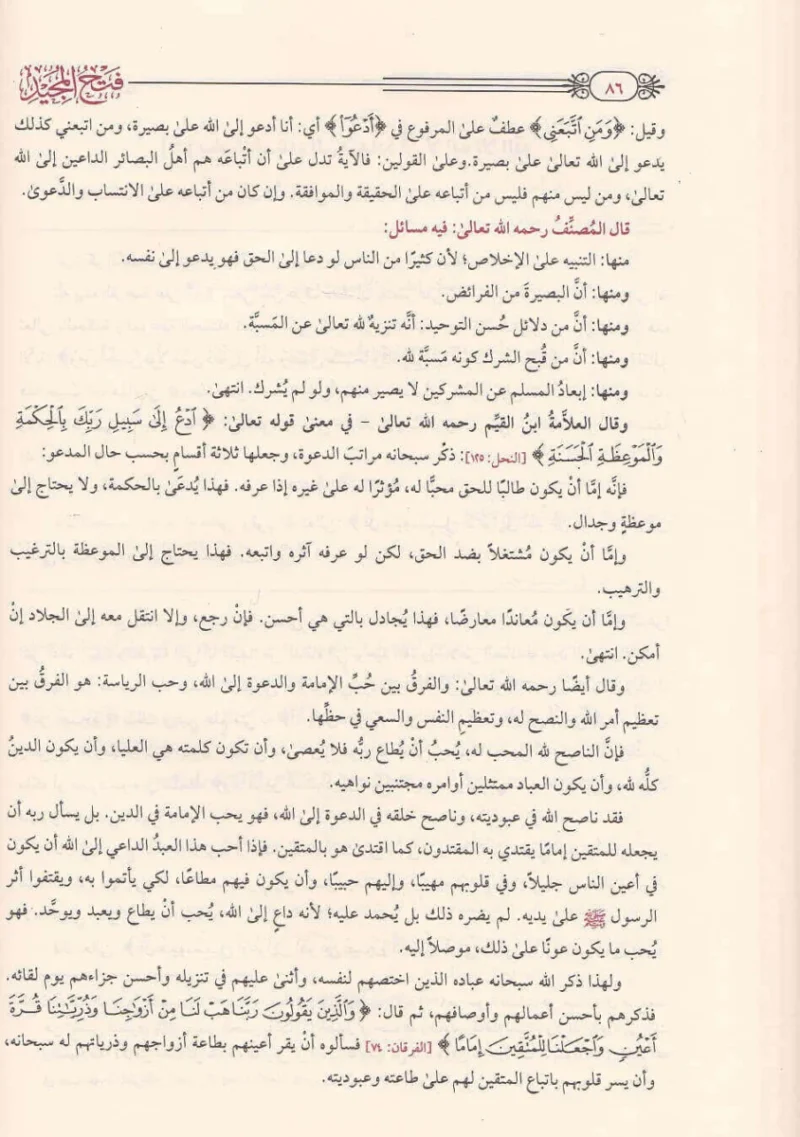 ٨٦
فتح المجيد
وقيل: ﴿وَمَنِ ٱتَّبَعَنِي﴾ عطفٌ علىٰ المرفوع في ﴿أَدْعُوٓاْ﴾ أي: أنا أدعو إلىٰ الله علىٰ بصيرة، ومن اتبعني كذلك
يدعو إلىٰ الله تعالىٰ علىٰ بصيرة.وعلىٰ القولين: فالآيةُ تدل علىٰ أن أتْباعَه هم أهلُ البصائر الداعين إلىٰ الله
تعالىٰ، ومن ليس منهم فليس من أتباعه علىٰ الحقيقة والموافقة. وإن كان من أتباعه علىٰ الانتساب والدَّعوىٰ.
قال المُصنِّفُ رحمه الله تعالىٰ: فيه مسائل:
منها: التنبيه علىٰ الإخلاص؛ لأن كثيرًا من الناس لو دعا إلىٰ الحق فهو يدعو إلىٰ نفسه.
ومنها: أنَّ البصيرةَ من الفرائض.
ومنها: أنَّ من دلائل حُسن التوحيد: أنَّه تنزيهٌ لله تعالىٰ عن المَسبَّة.
ومنها: أنَّ من قُبح الشرك كونه مَسبَّة لله.
ومنها: إبعادُ المسلم عن المشركين لا يصير منهم، ولو لم يُشرك. انتهىٰ.
وقال العلاَّمةُ ابنُ القيِّم رحمه الله تعالىٰ - في معنىٰ قوله تعالىٰ: ﴿ ٱدْعُ إِلَىٰ سَبِيلِ رَبِّكَ بِٱلْحِكْمَةِ
وَٱلْمَوْعِظَةِ ٱلْحَسَنَةِ ﴾ [النحل: ١٢٥]: ذكْر سبحانه مراتبَ الدعوة، وجعلها ثلاثة أقسامٍ بحسب حال المدعو:
فإنَّه إمَّا أنْ يكون طالبًا للحق محبًّا له، مُؤثرًا له علىٰ غيره إذا عرفه. فهذا يُدعَىٰ بالحكمة، ولا يحتاج إلىٰ
موعظةٍ وجدال.
وإمَّا أنْ يكون مُشتغلاً بضد الحق، لكن لو عرفه آثره واتبعه. فهذا يحتاج إلىٰ الموعظة بالترغيب
والترهيب.
وإمَّا أن يكَون مُعاندًا معارضًا، فهذا يُجادل بالتي هي أحسن. فإنْ رجع، وإلا انتقل معه إلىٰ الجلاد إنْ
أمكن. انتهىٰ.
وقال أيضًا رحمه الله تعالىٰ: والفرقُ بين حُبِّ الإمامة والدعوة إلىٰ الله، وحب الرياسة: هو الفرقُ بين
تعظيم أمر الله والنصح له، وتعظيمِ النفس والسعي في حظِّها.
فإنَّ الناصح لله المحب له، يُحبُّ أنْ يُطاع ربُّه فلا يُعصىٰ، وأن تكون كلمته هي العليا، وأن يكون الدينُ
كلُّه لله، وأن يكون العباد ممتثلين أوامره مجتنبين نواهيه.
فقد ناصح الله في عبوديته، وناصح خلقه في الدعوة إلىٰ الله، فهو يحب الإمامة في الدين. بل يسأل ربه أن
يجعله للمتقين إمامًا يقتدي به المقتدون، كما اقتدىٰ هو بالمتقين. فإذا أحب هذا العبدُ الداعي إلىٰ الله أن يكون
في أعين الناس جليلاً، وفي قلوبهم مهيبًا، وإليهم حبيبًا، وأن يكون فيهم مطاعًا، لكي يأتموا به، ويقتفوا أثر
الرسول ﷺ علىٰ يديه. لم يضره ذلك بل يُحمد عليه؛ لأنه داعٍ إلىٰ الله، يُحب أنْ يطاع ويعبد ويوحَّد. فهو
يُحب ما يكون عونًا علىٰ ذلك، موصلاً إليه.
ولهذا ذكر الله سبحانه عباده الذين اختصهم لنفسه، وأثنىٰ عليهم في تنزيله وأحسن جزاءهم يوم لقائه.
فذكرهم بأحسن أعمالهم وأوصافهم، ثم قال: ﴿ وَٱلَّذِينَ يَقُولُونَ رَبَّنَا هَبْ لَنَا مِنْ أَزْوَٰجِنَا وَذُرِّيَّـٰتِنَا قُرَّةَ
أَعْيُنٍ وَٱجْعَلْنَا لِلْمُتَّقِينَ إِمَامًا ﴾ [الفرقان: ٧٤] فسألوه أنْ يقر أعينهم بطاعة أزواجهم وذرياتهم له سبحانه،
وأن يسر قلوبهم باتباع المتقين لهم علىٰ طاعته وعبوديته.